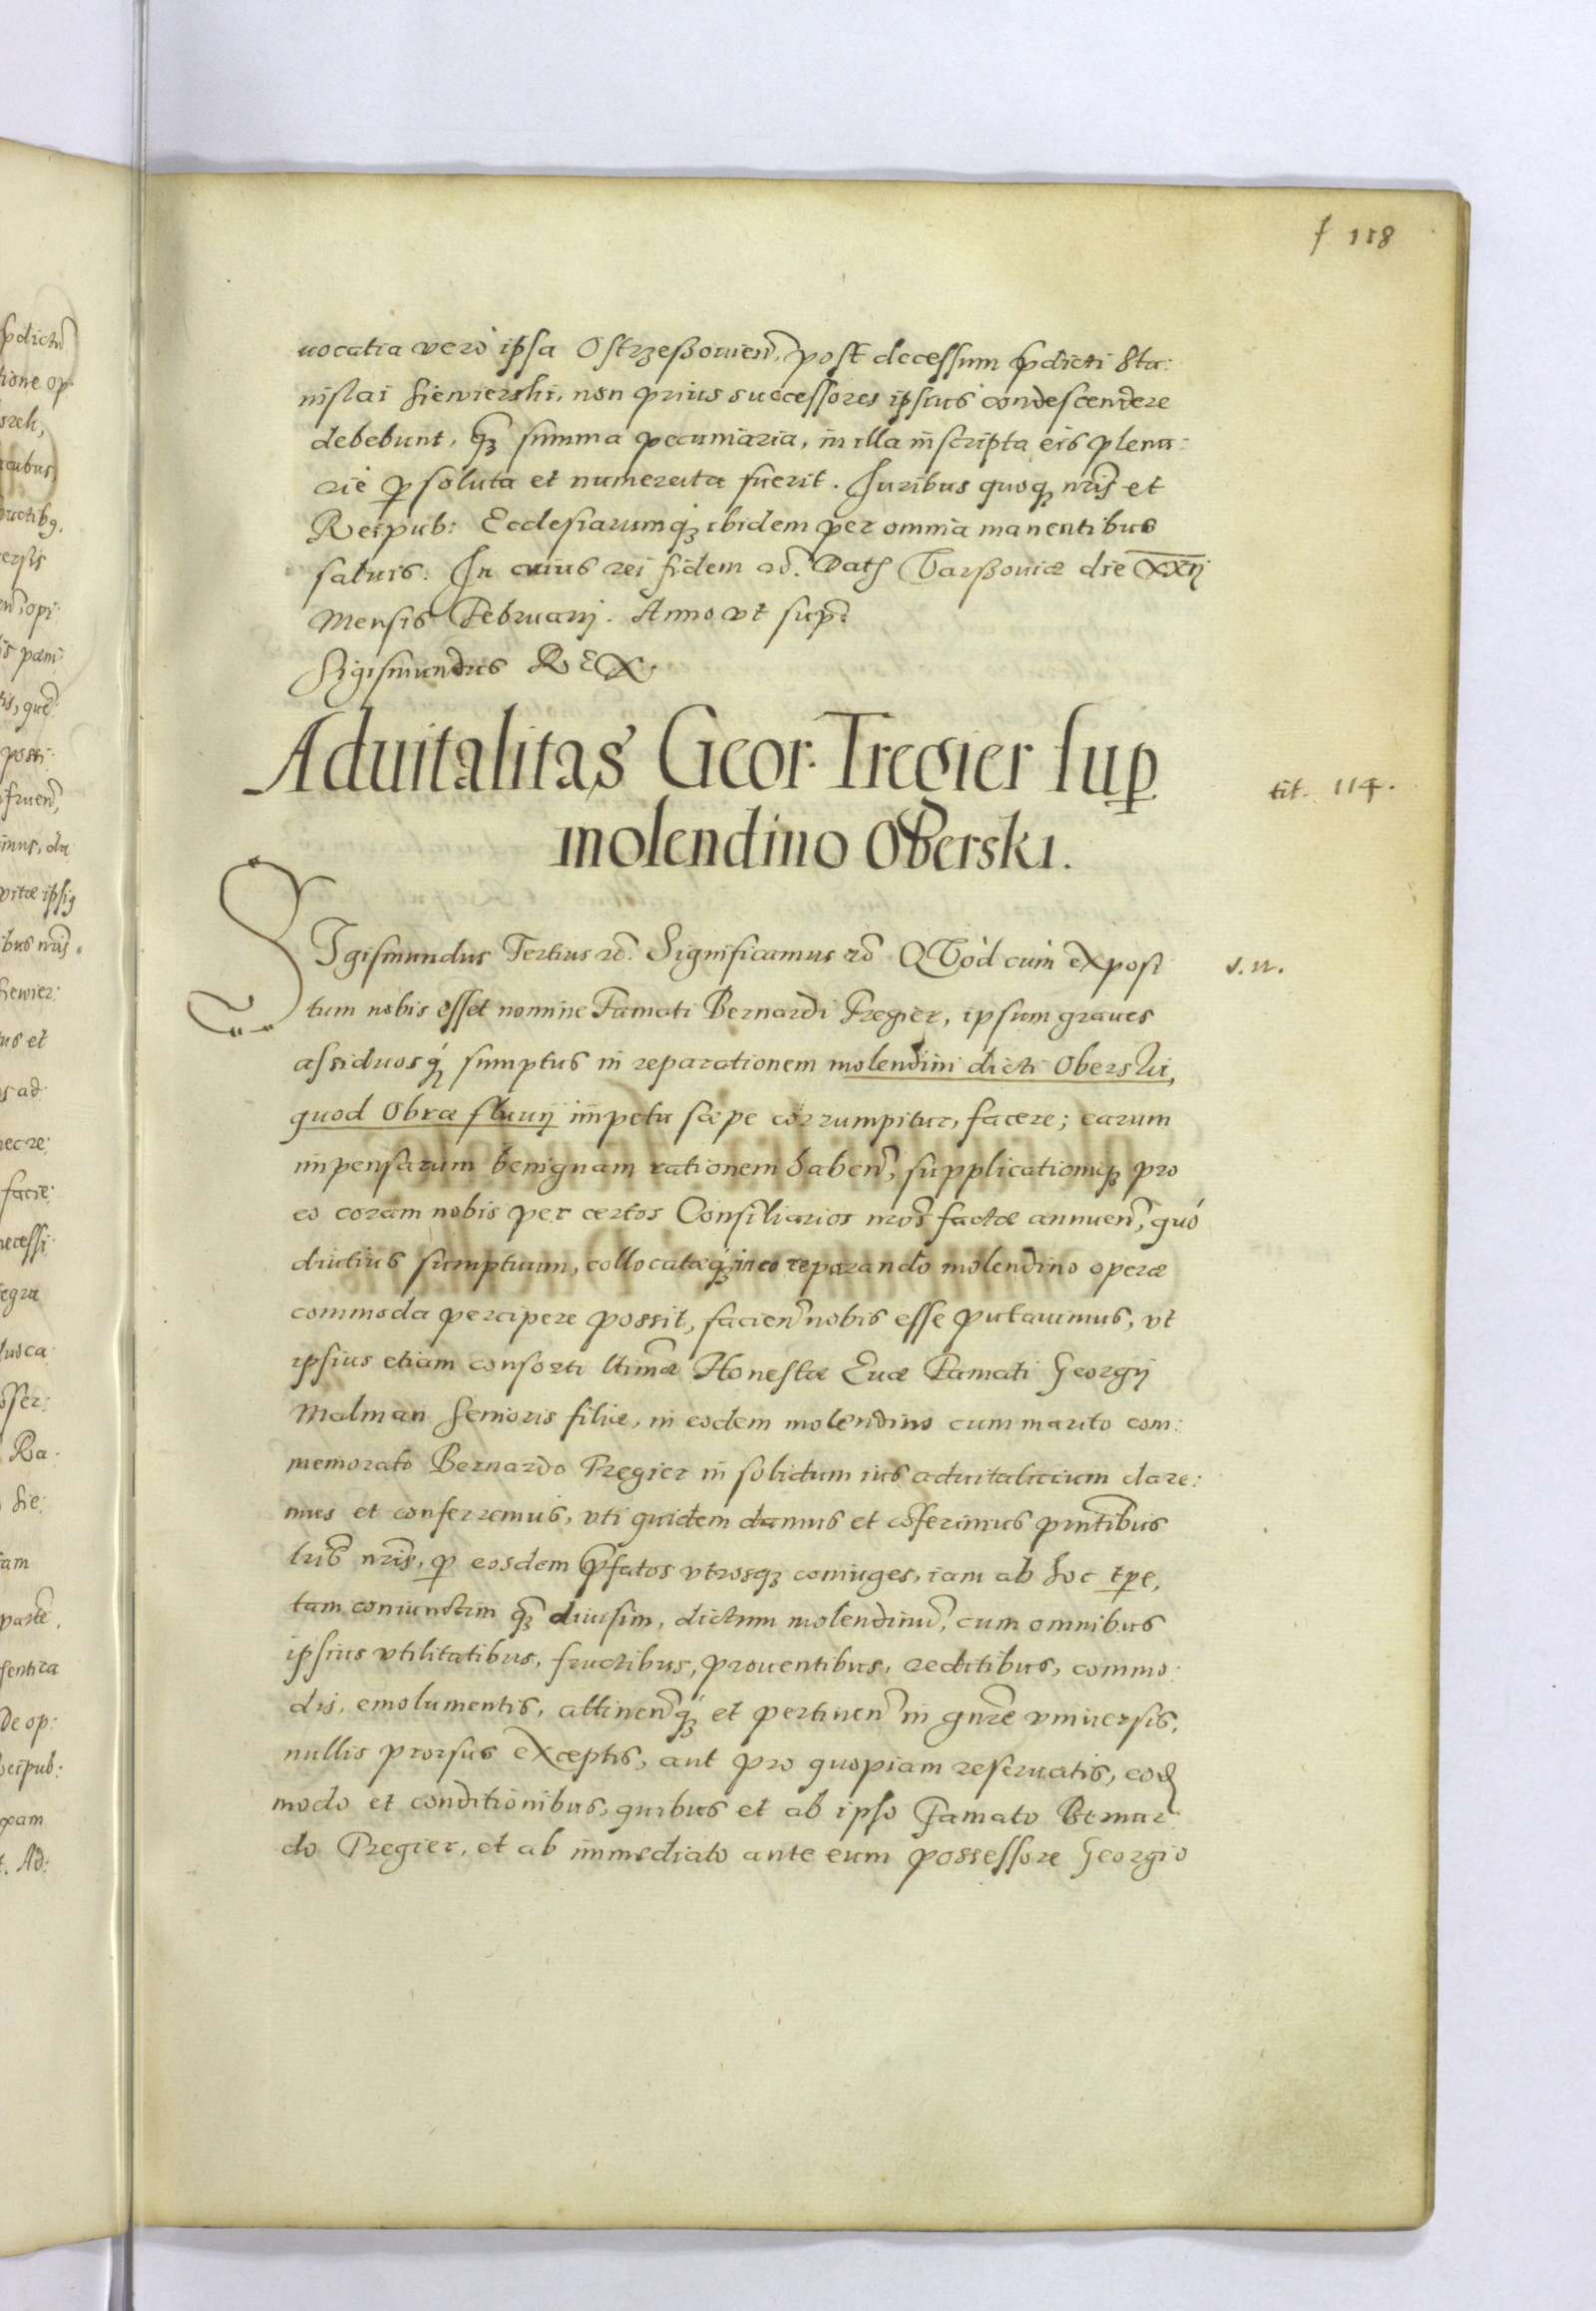 f 118
uocatia vero ipsa Ostrzeßouien, post decessum pdicti Sta:
nislai Siewierski, non prius successores ipsius condescendere
debebunt, qȝ summa pecuniaria, in illa inscripta eis plena:
rie psoluta et numerata fuerit. Juribus quoqȝ nris et
Reipub: Ecclesiarumqȝ ibidem per omnia manentibus
saluis. In cuius rei fidem &c. Dat Varßouiæ die XXII
Mensis Februarij. Anno vt sup.
Sigismundus REX.
Aduitalitas Geor: Tregier sup
molendino Oberski.
tit. 114.
SIgismundus Tertius &c. Significamus &c QVod cum exposi
tum nobis esset nomine Famati Bernardi Tregier, ipsum graues
assiduosqȝ sumptus in reparationem molendini dicti Oberski,
quod Obræ fluuij impetu sæpe corrumpitur, facere; earum
impensarum benignam rationem haben, supplicationiqȝ pro
eo coram nobis per certos Consiliarios nros factæ annuen, quó
diutius sumptuum, collocatæqȝ in eo reparando molendino operæ
commoda percipere possit, facien nobis esse putauimus, vt
ipsius etiam consorti ltimæ Honestæ Euæ Famati Georgij
Malman Senioris filiæ, in eodem molendino cum marito com:
memorato Bernardo Tregier in solidum ius aduitalicium dare:
mus et conferremus, vti quidem damus et coferimus pntibus
lris nris, p eosdem pfatos vtrosqȝ coniuges, iam ab hoc tpe,
tam coniunctim qȝ diuisim, dictum molendinu, cum omnibus
ipsius vtilitatibus, fructibus, prouentibus, reditibus, commo:
dis, emolumentis, attinenqȝ et pertinen in gnre vniuersis,
nullis prorsus exceptis, aut pro quopiam reseruatis, eod
modo et conditionibus, quibus et ab ipso Famato Bernar
do Tregier, et ab immediato ante eum possessore Georgio